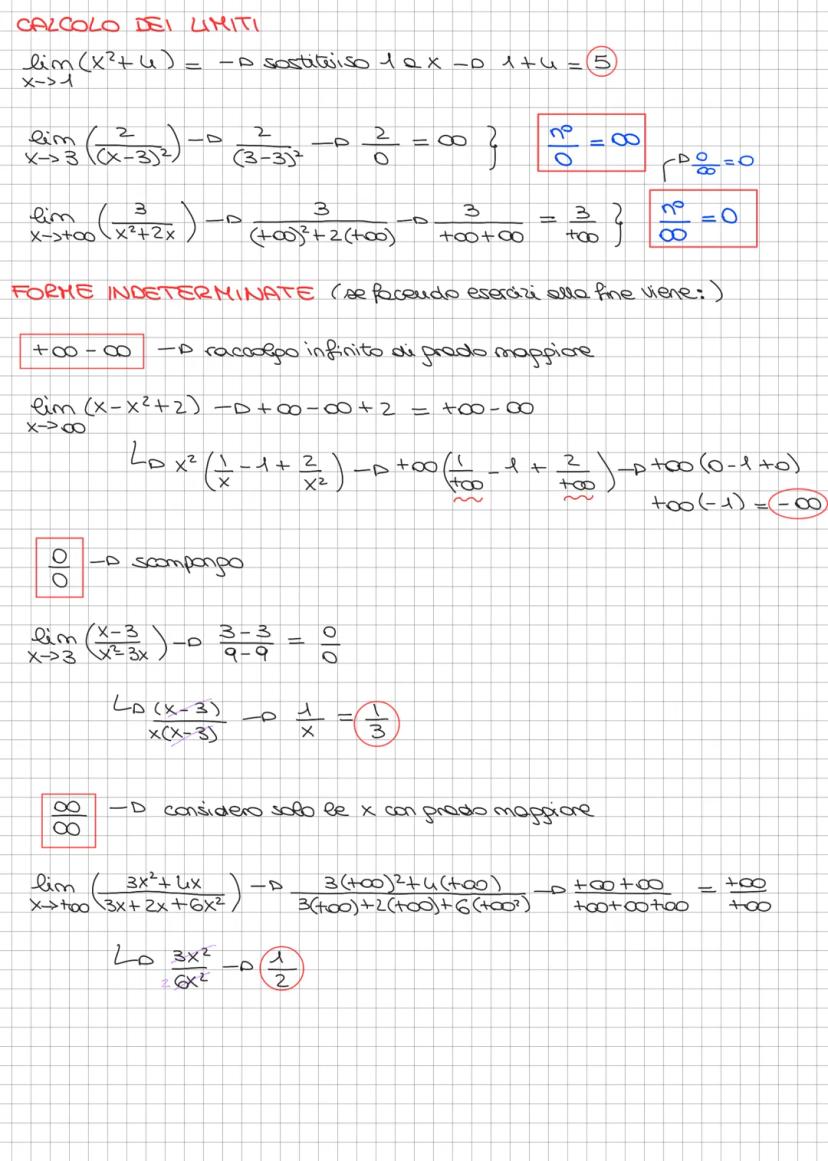 CALCOLO DEI LIMITI
lim x->1 (x²+4) = -> sostituisco 1 a x -> 1+4 = 5
lim x->3 (2/(x-3)²) -> 2/(3-3)² -> 2/0 = ∞ } n°/0 = ∞
-> 0/∞ = 0
lim x->+∞ (3/(x²+2x)) -> 3/((+∞)²+2(+∞)) -> 3/(+∞+∞) = 3/+∞ } n°/∞ = 0
FORME INDETERMINATE (se facendo esercizi alla fine viene:)
+∞-∞ -> raccolgo infinito di grado maggiore
lim x->∞ (x-x²+2) -> +∞-∞+2 = +∞-∞
-> x² (1/x - 1 + 2/x²) -> +∞ (1/+∞ - 1 + 2/+∞) -> +∞(0-1+0)
+∞(-1) = -∞
0/0 -> scompongo
lim x->3 ((x-3)/(x²-3x)) -> (3-3)/(9-9) = 0/0
-> (x-3)/(x(x-3)) -> 1/x = 1/3
∞/∞ -> considero solo le x con grado maggiore
lim x->+∞ ((3x²+4x)/(3x+2x+6x²)) -> (3(+∞)²+4(+∞))/(3(+∞)+2(+∞)+6(+∞²)) -> (+∞+∞)/(+∞+∞+∞) = +∞/+∞
-> 3x²/6x² 2 -> 1/2